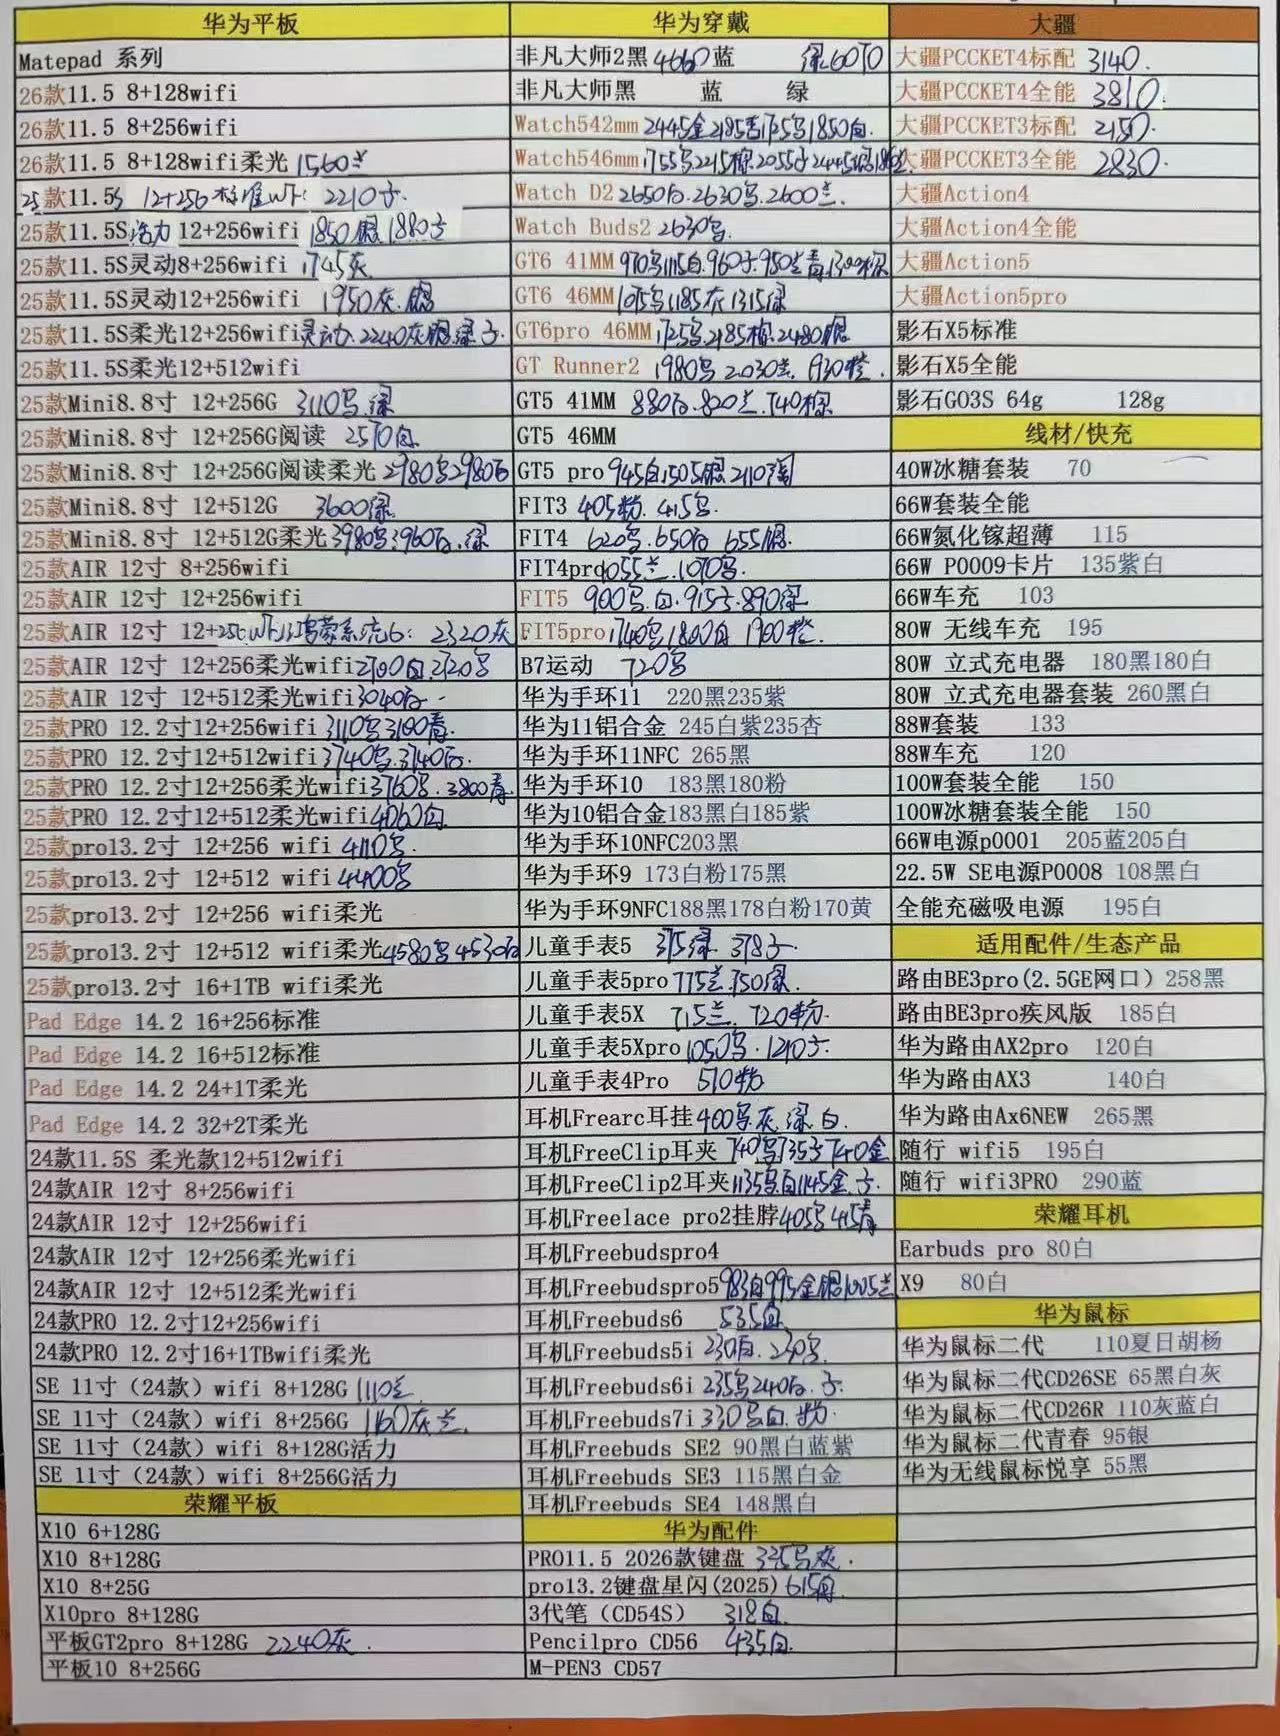 华为平板
Matepad 系列
26款11.5 8+128wifi
26款11.5 8+256wifi
26款11.5 8+128wifi柔光 1560兰
25款11.5S 12+256标准wifi: 2210子.
25款11.5S活力12+256wifi 1850银 1880子
25款11.5S灵动8+256wifi 1745灰
25款11.5S灵动12+256wifi 1950灰.银
25款11.5S柔光12+256wifi灵动. 2240灰银.绿子.
25款11.5S柔光12+512wifi
25款Mini8.8寸 12+256G 3110鸟.绿
25款Mini8.8寸 12+256G阅读 2570白.
25款Mini8.8寸 12+256G阅读柔光2980鸟2980白
25款Mini8.8寸 12+512G 3600绿.
25款Mini8.8寸 12+512G柔光3980鸟.3960白.绿
25款AIR 12寸 8+256wifi
25款AIR 12寸 12+256wifi
25款AIR 12寸 12+256wifi鸿蒙系统6: 2320灰
25款AIR 12寸 12+256柔光wifi2700白.2720鸟
25款AIR 12寸 12+512柔光wifi3040白.
25款PRO 12.2寸12+256wifi3110鸟3100青.
25款PRO 12.2寸12+512wifi3740鸟.3740白.
25款PRO 12.2寸12+256柔光wifi3760鸟.3800青.
25款PRO 12.2寸12+512柔光wifi4060白
25款pro13.2寸 12+256 wifi 4110鸟.
25款pro13.2寸 12+512 wifi4400鸟
25款pro13.2寸 12+256 wifi柔光
25款pro13.2寸 12+512 wifi柔光4580鸟4530白
25款pro13.2寸 16+1TB wifi柔光
Pad Edge 14.2 16+256标准
Pad Edge 14.2 16+512标准
Pad Edge 14.2 24+1T柔光
Pad Edge 14.2 32+2T柔光
24款11.5S 柔光款12+512wifi
24款AIR 12寸 8+256wifi
24款AIR 12寸 12+256wifi
24款AIR 12寸 12+256柔光wifi
24款AIR 12寸 12+512柔光wifi
24款PRO 12.2寸12+256wifi
24款PRO 12.2寸16+1TBwifi柔光
SE 11寸（24款）wifi 8+128G 1110兰.
SE 11寸（24款）wifi 8+256G 1160灰兰.
SE 11寸（24款）wifi 8+128G活力
SE 11寸（24款）wifi 8+256G活力
荣耀平板
X10 6+128G
X10 8+128G
X10 8+25G
X10pro 8+128G
平板GT2pro 8+128G 2240灰.
平板10 8+256G
华为穿戴
非凡大师2黑4660蓝 绿6070
非凡大师黑 蓝 绿
Watch542mm 2445金2185青1725鸟1850白.
Watch546mm1755鸟2215棕2055子2445
Watch D2 2650白.2630鸟.2600兰.
Watch Buds2 2630鸟.
GT6 41MM 970鸟1115白.960子.950兰青.1300棕
GT6 46MM1075鸟1185灰1315绿
GT6pro 46MM1725鸟.2185棕2480银
GT Runner2 1980鸟2030兰.1930橙.
GT5 41MM 880白.820兰.740棕
GT5 46MM
GT5 pro945白1505银2110
FIT3 405粉.415鸟.
FIT4 620鸟.650白 655银.
FIT4pro1055兰.1070鸟.
FIT5 900鸟.白.915子.890绿
FIT5pro1740鸟1800白 1900橙.
B7运动 720鸟
华为手环11 220黑235紫
华为11铝合金 245白紫235杏
华为手环11NFC 265黑
华为手环10 183黑180粉
华为10铝合金183黑白185紫
华为手环10NFC203黑
华为手环9 173白粉175黑
华为手环9NFC188黑178白粉170黄
儿童手表5 375绿 378子.
儿童手表5pro775兰.750绿.
儿童手表5X 715兰.720粉.
儿童手表5Xpro1050鸟.1210子.
儿童手表4Pro 510粉
耳机Frearc耳挂400鸟.灰.绿.白.
耳机FreeClip耳夹 740鸟735子740金
耳机FreeClip2耳夹1135鸟白1145金.子.
耳机Freelace pro2挂脖405鸟415青
耳机Freebudspro4
耳机Freebudspro5983白995金银1005兰
耳机Freebuds6 535白
耳机Freebuds5i 230白.230鸟.
耳机Freebuds6i 235鸟240白.子.
耳机Freebuds7i330鸟白.粉.
耳机Freebuds SE2 90黑白蓝紫
耳机Freebuds SE3 115黑白金
耳机Freebuds SE4 148黑白
华为配件
PRO11.5 2026款键盘 335鸟灰.
pro13.2键盘星闪(2025)615白.
3代笔（CD54S） 318白.
Pencilpro CD56 435白.
M-PEN3 CD57
大疆
大疆PCCKET4标配 3140.
大疆PCCKET4全能 3810.
大疆PCCKET3标配 2150.
大疆PCCKET3全能 2830.
大疆Action4
大疆Action4全能
大疆Action5
大疆Action5pro
影石X5标准
影石X5全能
影石GO3S 64g 128g
线材/快充
40W冰糖套装 70
66W套装全能
66W氮化镓超薄 115
66W P0009卡片 135紫白
66W车充 103
80W 无线车充 195
80W 立式充电器 180黑180白
80W 立式充电器套装 260黑白
88W套装 133
88W车充 120
100W套装全能 150
100W冰糖套装全能 150
66W电源p0001 205蓝205白
22.5W SE电源P0008 108黑白
全能充磁吸电源 195白
适用配件/生态产品
路由BE3pro(2.5GE网口）258黑
路由BE3pro疾风版 185白
华为路由AX2pro 120白
华为路由AX3 140白
华为路由Ax6NEW 265黑
随行 wifi5 195白
随行 wifi3PRO 290蓝
荣耀耳机
Earbuds pro 80白
X9 80白
华为鼠标
华为鼠标二代 110夏日胡杨
华为鼠标二代CD26SE 65黑白灰
华为鼠标二代CD26R 110灰蓝白
华为鼠标二代青春 95银
华为无线鼠标悦享 55黑